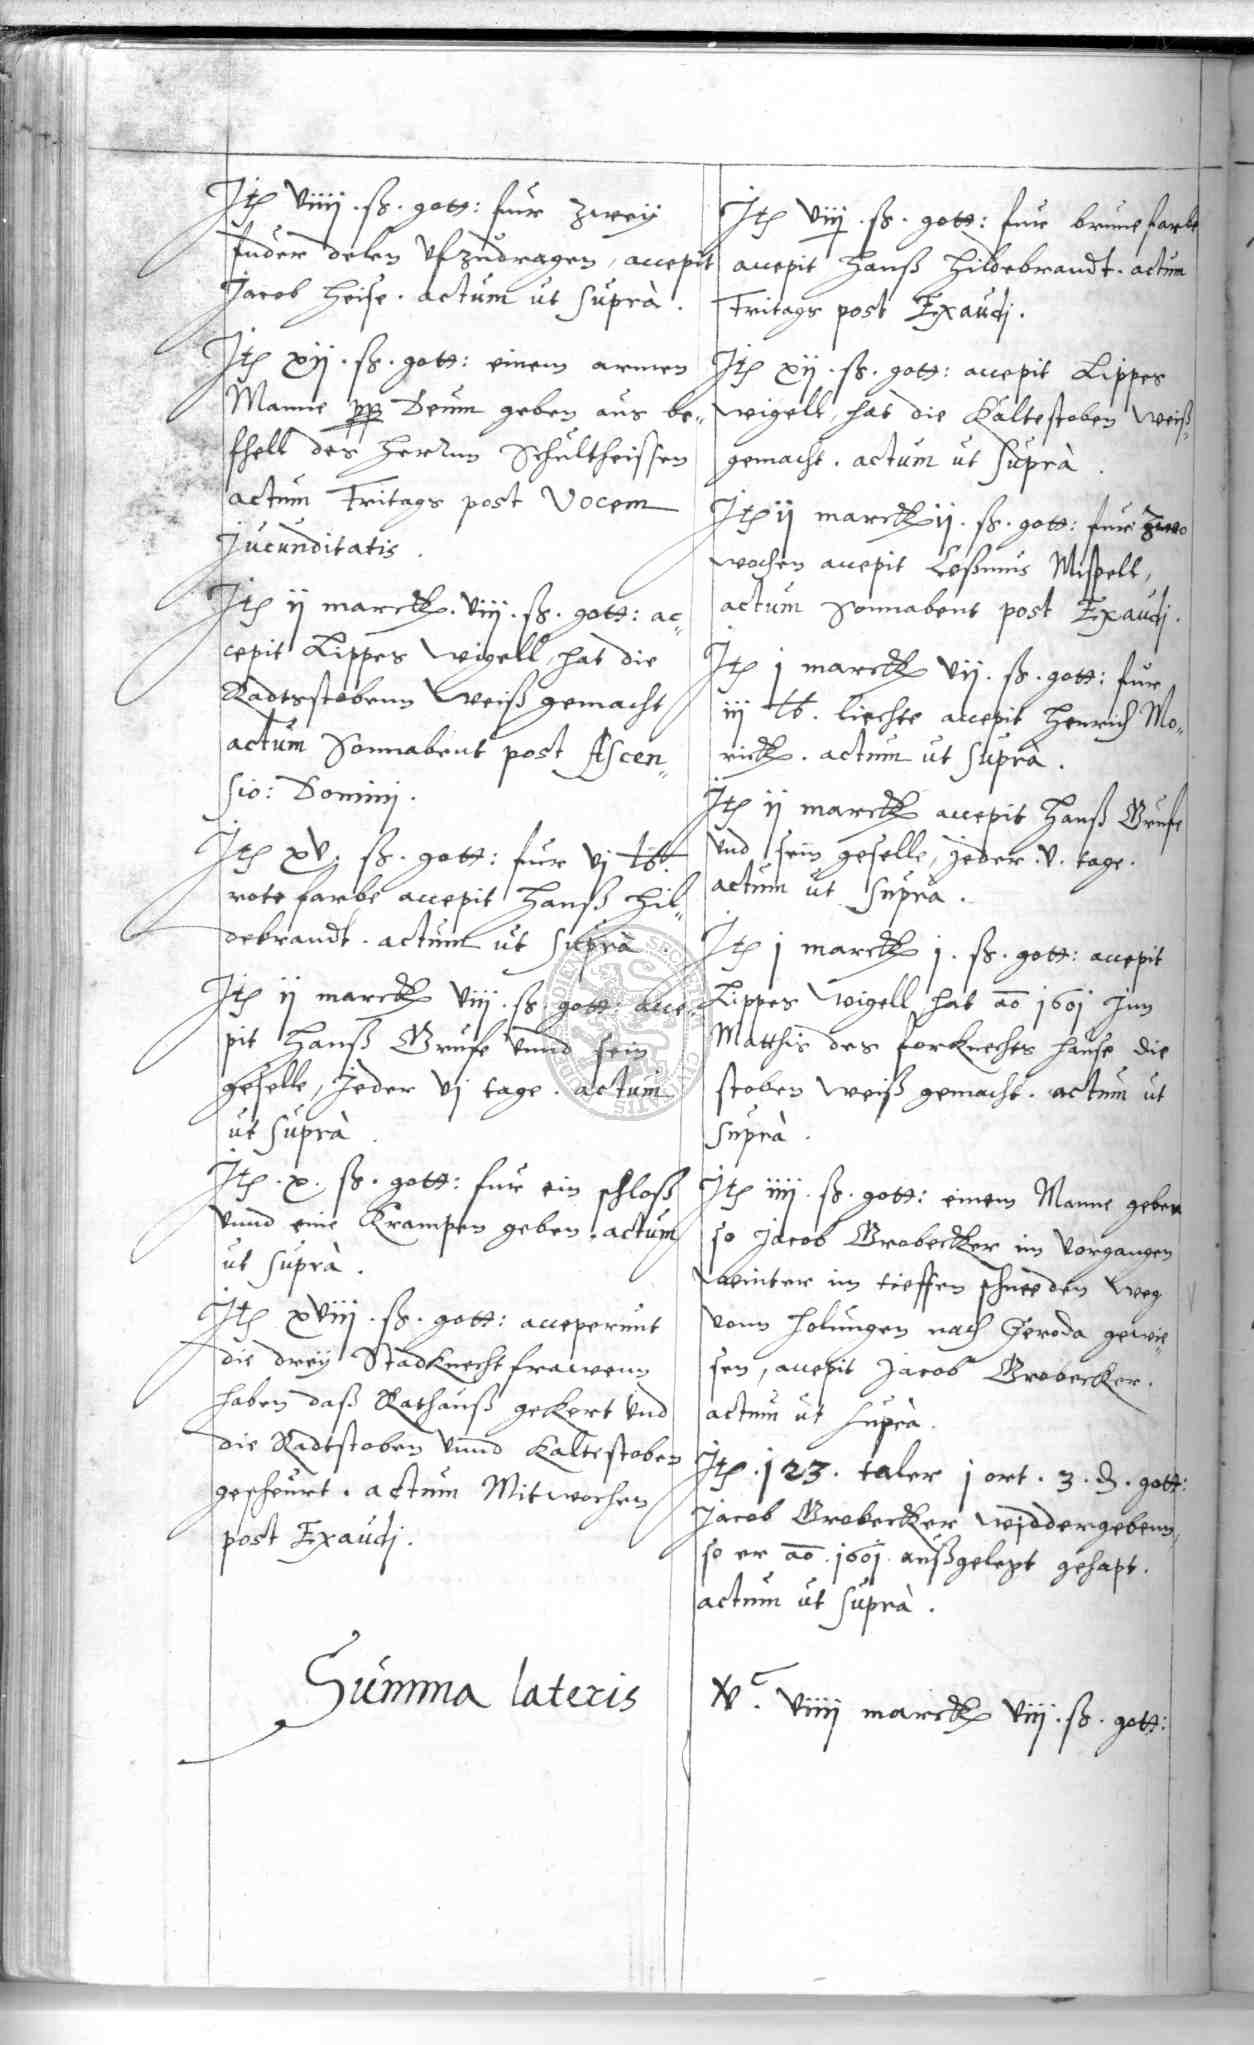 Jt͠ viiij . ß . gott: fur zweÿ
fuder delen ufzudragen, accepit
Jacob Heise . actum ut suprà .
Jt͠ xij . ß . gott: einem armen
Manne pp Deum geben aus be„
fhell des Herrnn Schultheissen
actum Fritags post Vocem
Jucunditatis .
Jt͠ ij marck . viij . ß . gott: ac„
cepit Lippes Wigell, hat die
Radtsstobenn Weiß gemacht
actum Sonnabent post Ascen„
sio: Dominj .
Jt͠ xv . ß . gott: fur vj lb.
rote farbe accepit Hanß Hil„
debrandt . actum ut suprà .
Jt͠ ij marck viij . ß . gott: acce„
pit Hanß Grufe unnd sein
geselle, Jeder vj tage . actum
ut suprà .
Jt͠ . x . ß . gott: fur ein schloß
unnd eine Krampen geben . actum
ut suprà .
Jt͠ xviij . ß . gott: acceperunt
die dreÿ Stadknecht frawenn
haben daß Rathauß gekert und
die Radtstoben unnd Kaltestoben
gescheurt . actum Mitwochen
post Exaudj .
Jt͠ viij . ß . gott: fur brune farbe
accepit Hanß Hildebrandt . actum
Fritags post Exaudj .
Jt͠ xij . ß . gott: accepit Lippes
Wigell, hat die Kaltestoben Weiß„
gemacht . actum ut suprà .
Jt͠ ij marck ij . ß . gott: fur zwo
wochen accepit Mistell,
actum Sonnabent post Exaudj .
Jt͠ j marck vij . ß . gott: fur
iij lb . liechte accepit Henrich Mo„
rick . actum ut suprà .
Jt͠ ij marck accepit Hanß Grufe
und sein geselle, Jeder . v . tage .
actum ut suprà .
Jt͠ j marck j . ß . gott: accepit
Lippes Wigell hat ao 1601 Jnn
Matthis des forknechts hause die
stoben Weiß gemacht . actum ut
suprà .
Jt͠ iiij . ß . gott: einem Manne geben
so Jacob Grobecker im vorgangen
winter im tieffen schnee den weg
vonn Holungen nach Geroda gewie„
sen, accepit Jacob Grobecker .
actum ut suprà .
Jt͠ . 123 . taler j ort . 3 . d . gott:
Jacob Grobecker widdergebenn,
so er ao . 1601 . außgelegt gehapt .
actum ut suprà .
Summa lateris
vᶜ . viiij marck viij . ß . gott: